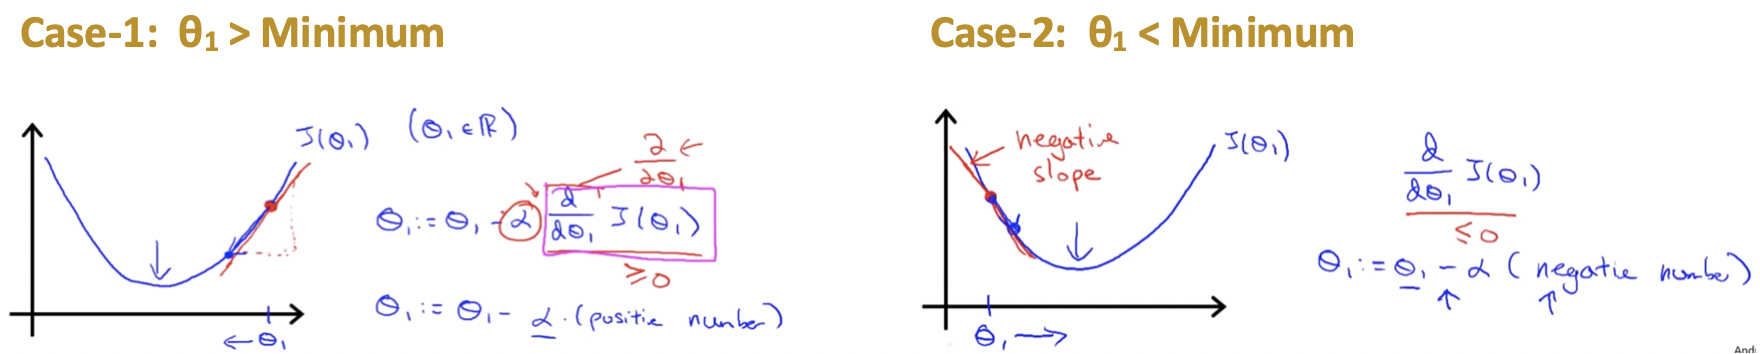 Case-1: θ₁ > Minimum
J(θ₁) (θ₁ ∈ ℝ)
∂/∂θ₁ ←
θ₁ := θ₁ - α d/dθ₁ J(θ₁)
≥ 0
θ₁ := θ₁ - α · (positie number)
← θ₁
Case-2: θ₁ < Minimum
negative
slope
J(θ₁)
d/dθ₁ J(θ₁)
≤ 0
θ₁ := θ₁ - α (negatie number)
θ₁ →
And